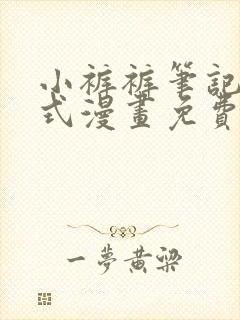 小裤裤筆記
式漫畫免費
一夢黄梁